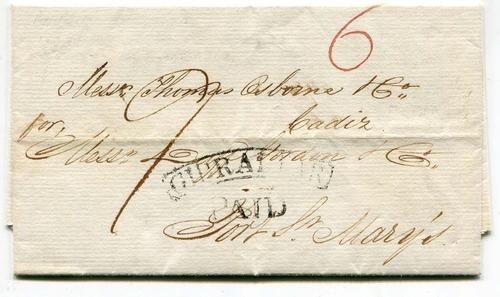 6
Messrs Thomas Osborne & Co.
Cadiz
for,
Messrs Gordon & Co.
7
GIBRALTAR
PAID
Port St. Mary's.